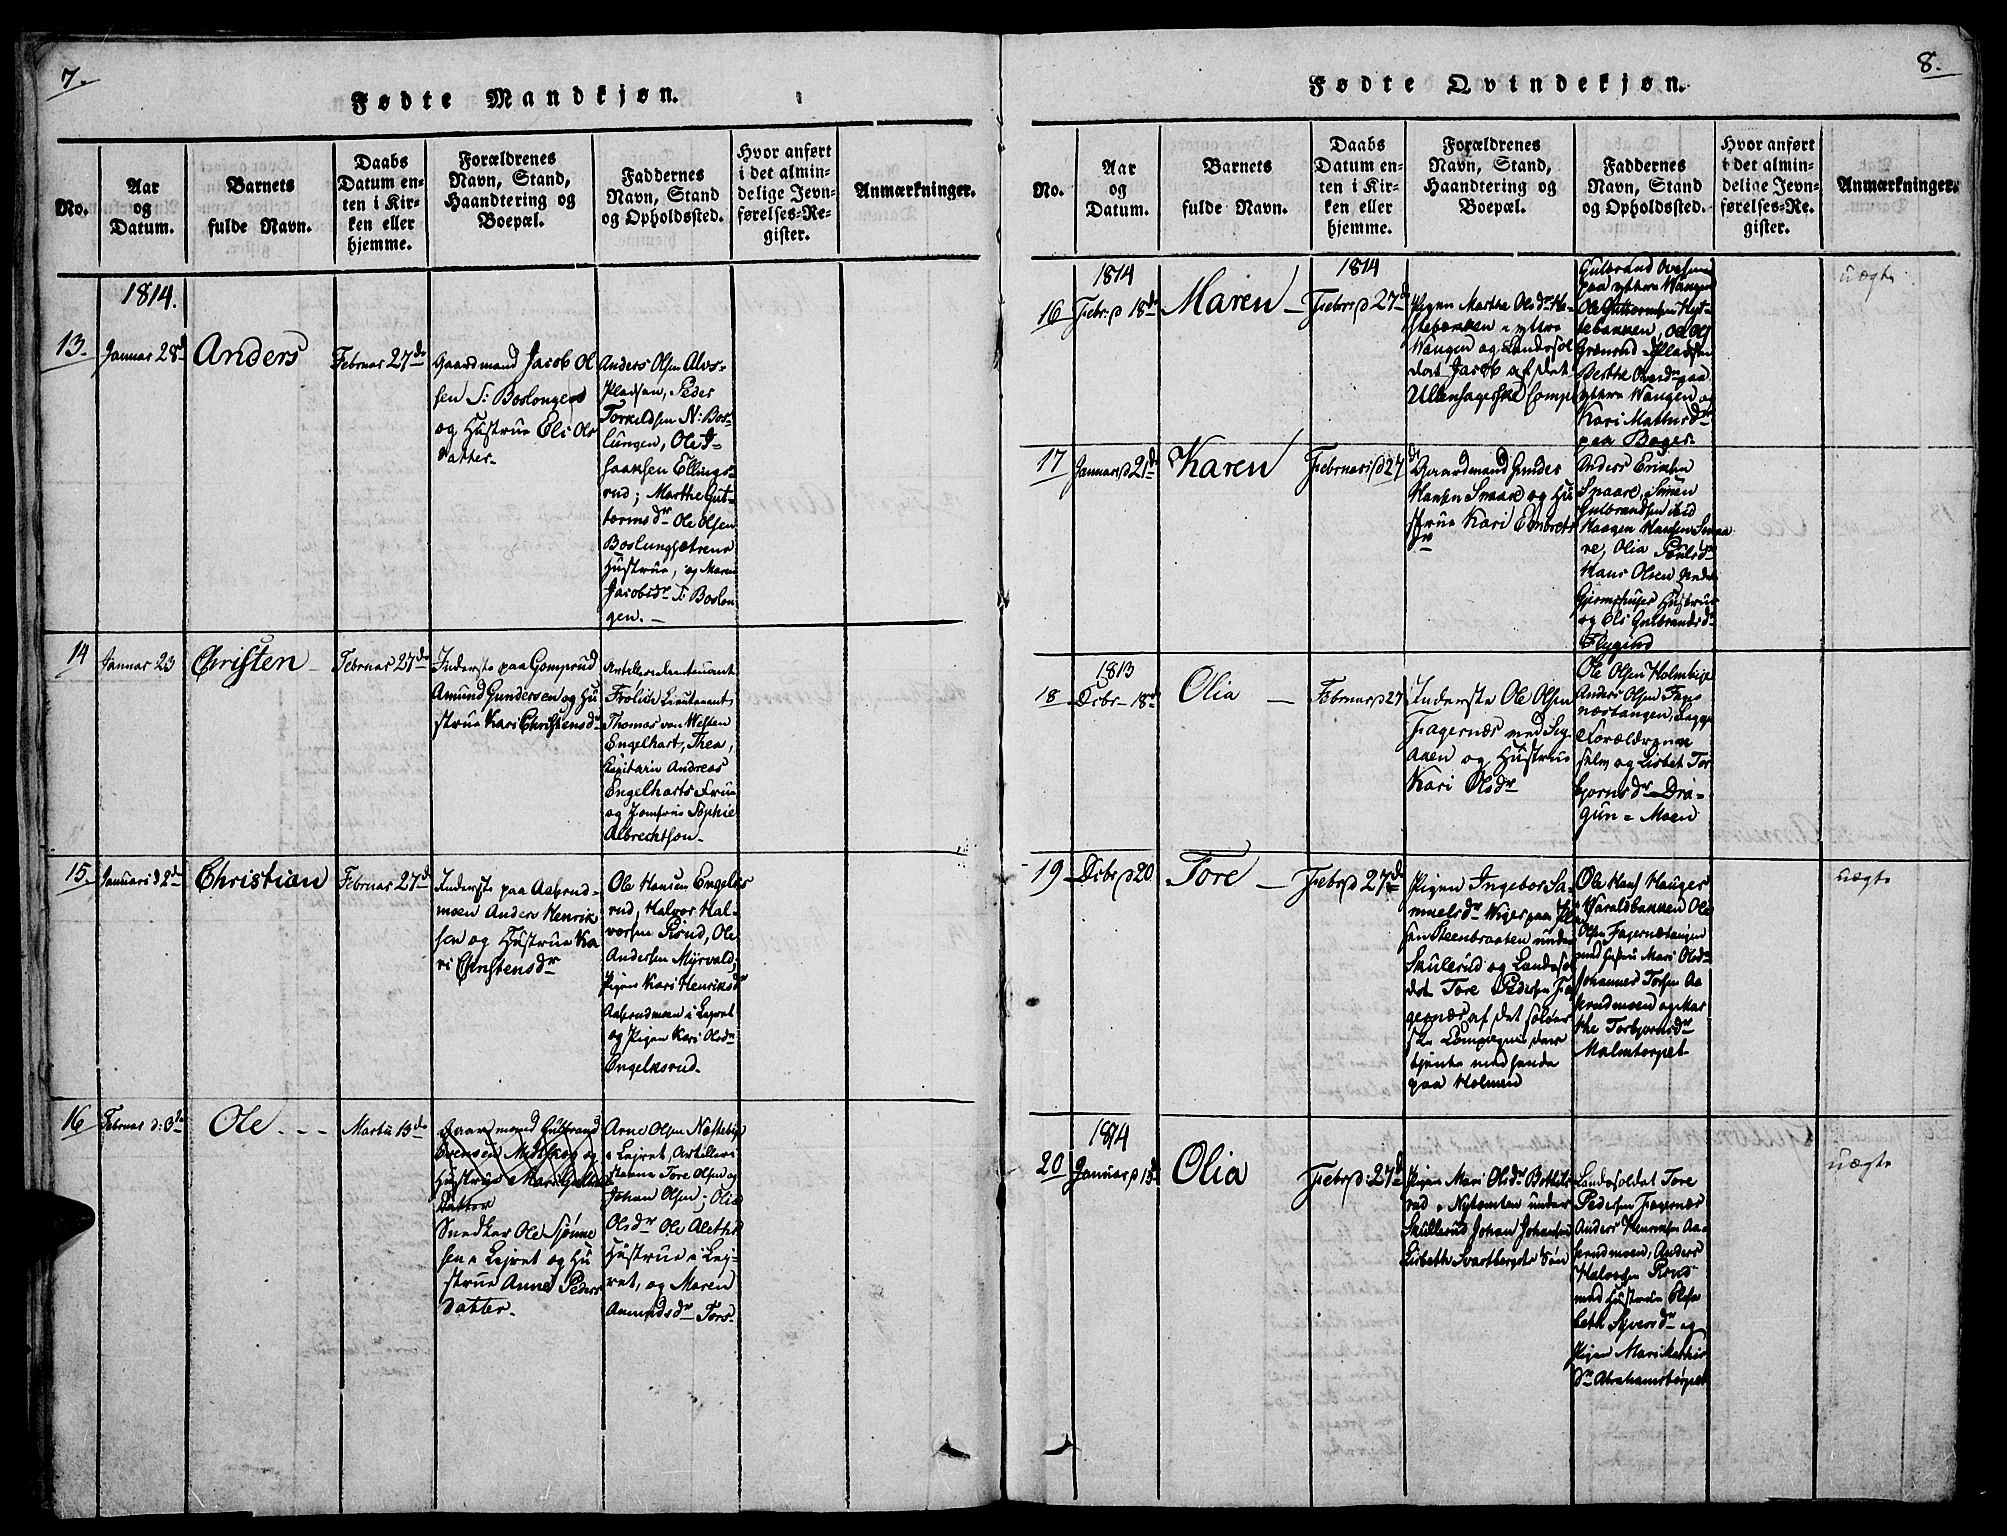 7.
Fødte Mandkjøn.
No.
Aar
og
Datum.
Barnets
fulde Navn.
Daabs
Datum en-
ten i Kir-
ken eller
hjemme.
Forældrenes
Navn, Stand,
Haandtering og
Boepæl.
Faddernes
Navn, Stand
og Opholdssted.
Hvor anført
i det almin-
delige Jevn-
førelses-Re-
gister.
Anmærkninger.
1814.
13.
Januar 28d
Anders
Februar 27de
Gaardmand Jacob Ol
sen S: Boslongen
og Hustrue Eli Ols
datter.
Anders Olsen Alvs-
Pladsen, Peder
Torkildsen N: Bos-
lungen, Ole I-
saaksen Ellings-
rud; Marthe Gut-
tormsdr Ole Olsen
Boslungsætrene
Hustrue, og Maren
Jacobsdr S: Boslon-
gen.
14
Januar 23
Christen
Februar 27de
Inderste paa Gomprud
Amund Gundersen og Hu
strue Kari Christensdr
Frölich Lieutenant
Thomas von Westen
Engelhart, Thea,
Kapitain Andreas
Engelharts Frue
og Jomfrue Sophie
Albrechtson.
15.
Januari d 2d
Christian
Februar 27d
Inderste paa Aaserud-
moen Anders Henrik
sen og Hustrue Ka
ri Christensdr
Ole Hansen Engels
rud, Halvor Hal-
vorsen Krud, Ole
Andersen Myrvald,
Pigen Kari Henriksdr
Aaserudmoen i Lejret
og Pigen Kari Olsdr
Engelsrud.
16
Februar d: 3de
Ole
Martii 13de
Gaardmand Gulbrand
Evensen Midtskog og
Hustrue Mari
Datter
Snedker Ole Sjønne
sen i Lejret og Hu
strue Anne Peders
datter.
Arne Olsen Næstebye
i Lejret, Artilleri
sterne Tore Olsen og
Johan Olsen; Olia
Olsdr Ole Alethes
Hustrue i Lej-
ret, og Maren
Amundsdr Tors-
8.
Fødte Qvindekjøn.
No.
Aar
og
Datum.
Barnets
fulde Navn.
Daabs
Datum en-
ten i Kir-
ken eller
hjemme.
Forældrenes
Navn, Stand,
Haandtering og
Boepæl.
Faddernes
Navn, Stand
og Opholdssted.
Hvor anført
i det almin-
delige Jevn-
førelses-Re-
gister.
Anmærkninger.
1814
16
Febr: d 18de
Maren
1814
Febr: d 27d
Pigen Marthe Olsdr He-
stebakken i yttre
Wangen og Landsol
dat Jacob af det
Ullensagerske Comp:
Gulbrand Ovesen
paa yttere Wangen
Ole Guttormsen Hest-
tebakken,
Berthe Ovesdr paa
yttere Wangen og
Kari Mathisdr
paa Bager.
uægte
17
Januar d 21d
Karen
Februari d 27d
Gaardmand Gunder
Hansen Snaare og Hu
strue Kari Embrets
dr
Anders Eriksen
Snaare, Simen
Gulbrandsen ibid
Haagen Hansen Snaa
re, Olia Poulsdr
Hans Olsen
Hustrue
og Eli Gulbrandsdr
18
1813
Dcbr 18de
Olia
Februar d 27
Inderste Ole Olsen
Fagernæs med Sig
aaen og Hustrue
Kari Olsdr
Ole Olsen Holmbye
Anders Olsen Fager
næstangen, begge
Forældrene
selv og Lisbet Tor
bjornsdr Dra-
gun-Moen
19
Dcbr d 20
Tore
Febr d 27de
Pigen Ingebor Sa-
muelsdr Niger paa Pla
sen Steenbraaten under
Skulerud og Landsol
dat Tore Pedersen Fa
gernæs af det solør
ske Compagnie der
tjente med hende
paa Holmen
Ole Hans Hauger
Haraldbakken Ole
Olsen Fagernæstangen
med Hustru Mari Olsdr
Johannes Torsen Aa
serudmoen og Mar
the Torbjornsdr
Malmtorpet
uægte
20
1814
Januar d 13d
Olia
Febr d: 27d
Pigen Mari Olsdr Bottils
rud i Nytomten under
Skullerud Johan Johansen
Lisbeth Svartbergets Søn
Landsoldat Tore
Pedersen Fagernæs
Anders Henriksen Aa-
serudmoen, Anders
Halvorsen Krud
med Hustrue Elisa
beth Syversdr og
Pigen Mari Mathis
dr Abrahamstorpet
uægte